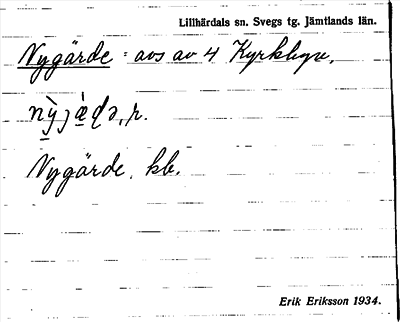 Lillhärdals sn. Svegs tg. Jämtlands län.
Nygärde = avs av 4 Kyrkbyn,
Nygärde, kb.
Erik Eriksson 1934.